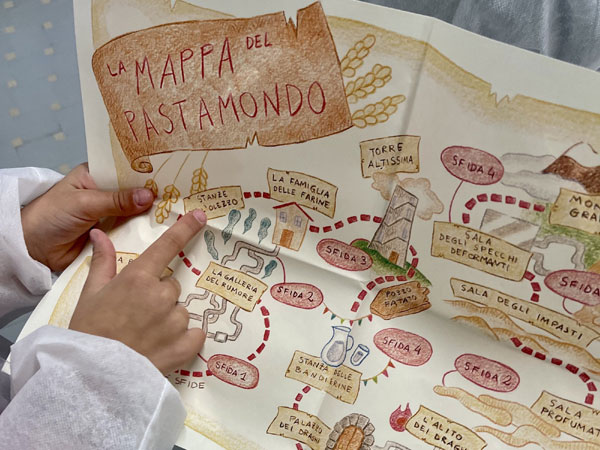 LA MAPPA DEL
PASTAMONDO
TORRE
ALTISSIMA
LA FAMIGLIA
DELLE FARINE
STANZE
OLEZZO
SFIDA 4
SALA
DEGLI SPECCHI
DEFORMANTI
SFIDA 3
LA GALLERIA
DEL RUMORE
SFIDA 2
POZZO
FATATO
SALA DEGLI IMPASTI
SFIDA 1
SFIDE
STANZA DELLE
BANDIERINE
SFIDA 4
SFIDA 2
SALA
PALAZZO
DEI DRAGHI
L'ALITO
DEI DRAGHI